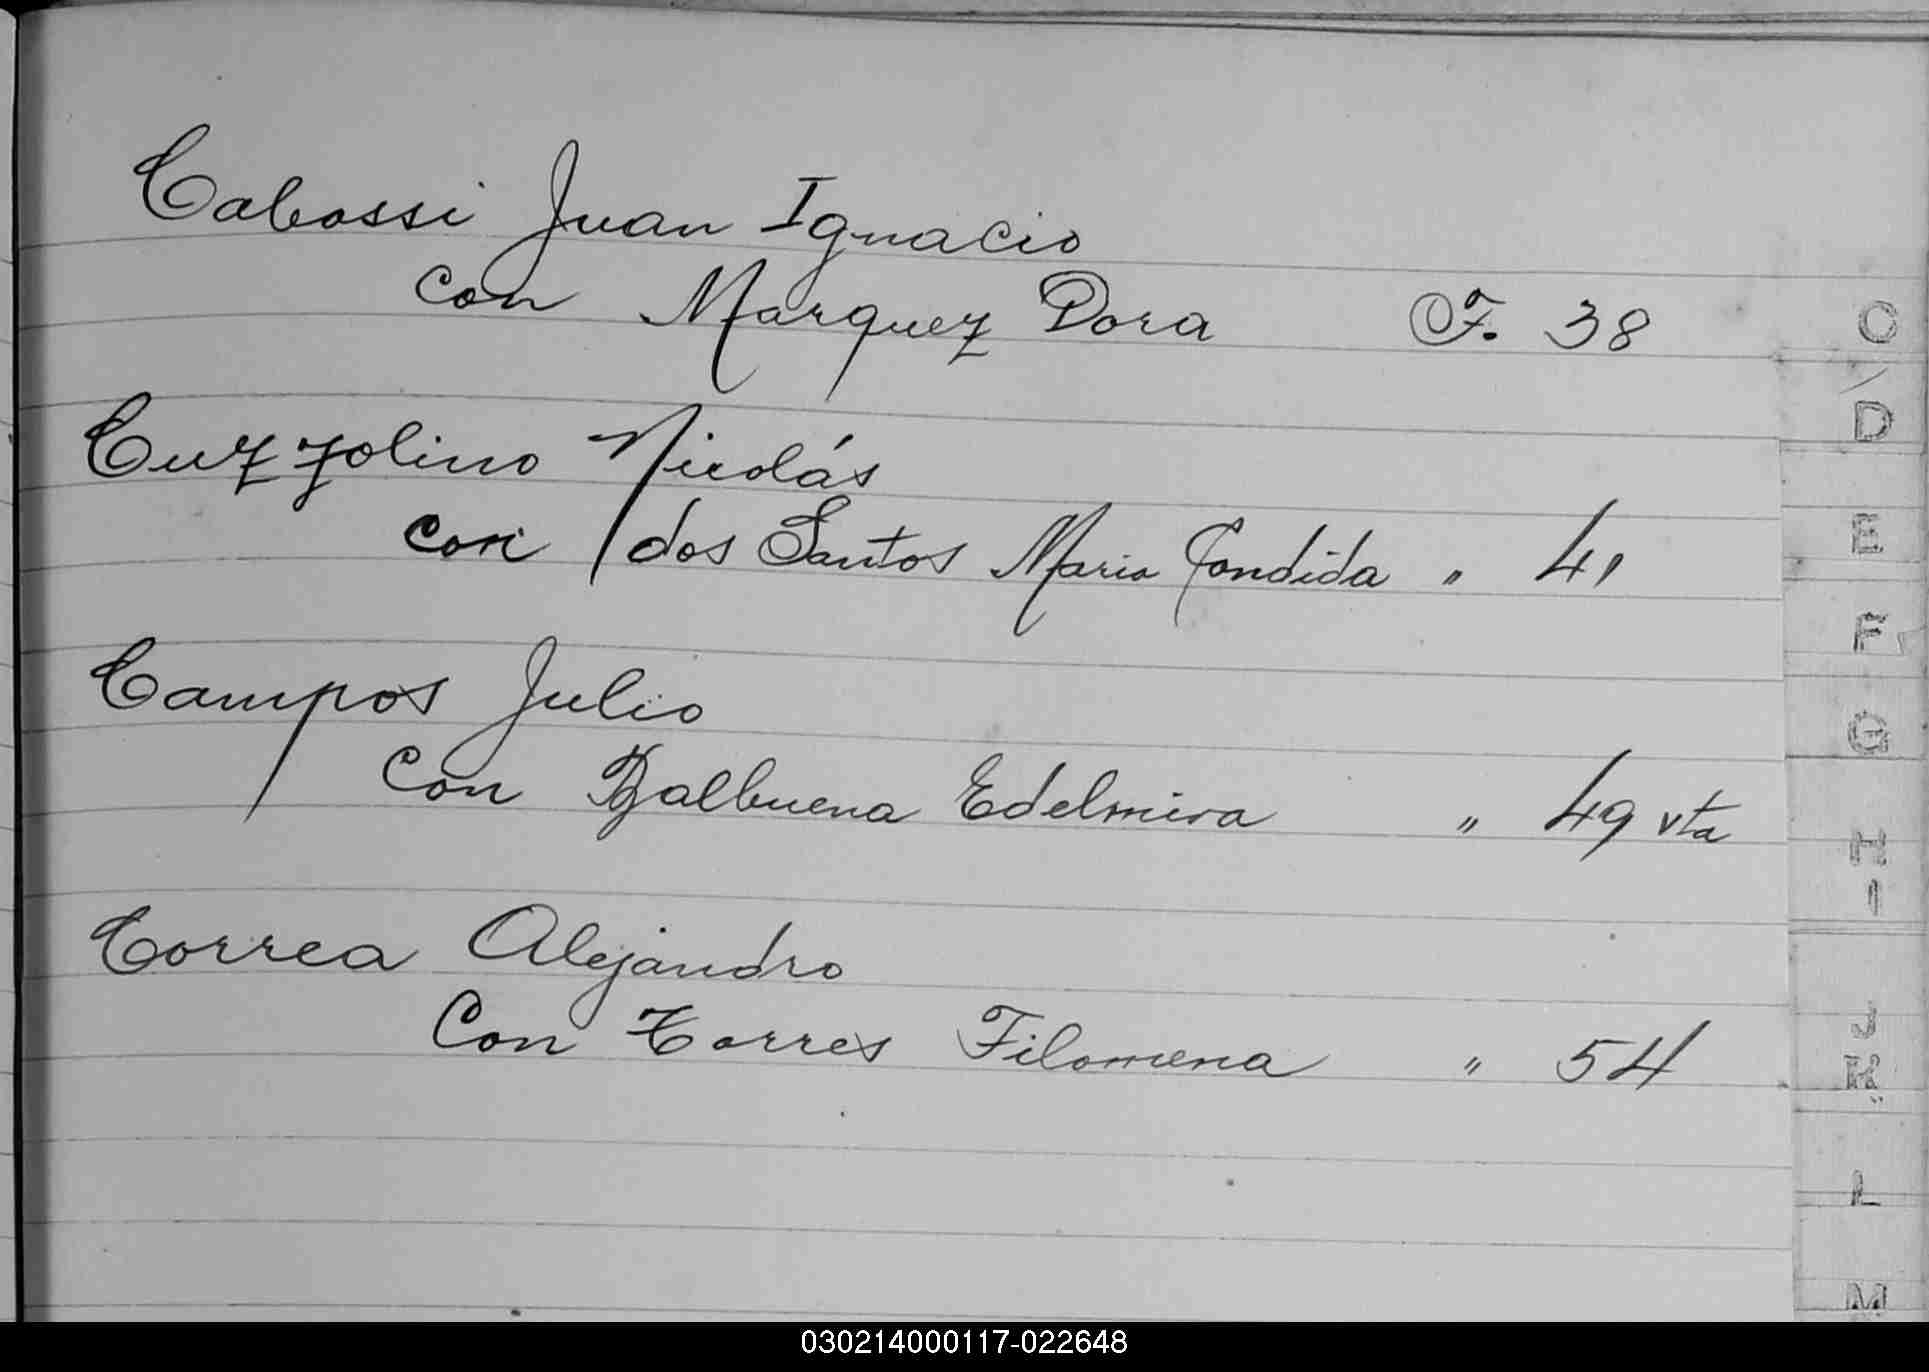 Cabossi Juan Ignacio
con Marquez Dora F. 38
Cuzzolino Nicolás
con dos Santos Maria Candida " 41
Campos Julio
Con Balbuena Edelmira " 49 vta
Correa Alejandro
Con Torres Filomena " 54
C
D
E
F
G
H
I
J
K
L
M
030214000117-022648